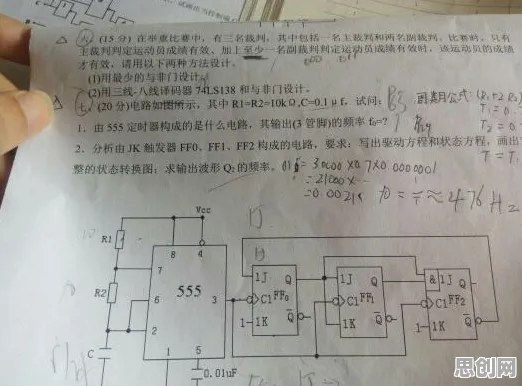 六、(15分) 在举重比赛中，有三名裁判，其中包括一名主裁判和两名副裁判，比赛时，只有
主裁判判定运动员成绩有效、加上至少一名副裁判判定运动员成绩有效时，该运动员的成绩
才有效，请用以下两种方法设计。
(1)用最少的与非门设计
(2)用三线-八线译码器 74LS138 和与非门设计。
七、(20分)电路如图所示，其中 R1=R2=10kΩ,C=0.1μf，试问：
周期公式: (R1+2R2)
1．由 555 定时器构成的是什么电路，其输出(3 管脚)的频率 f0=?
2．分析由 JK 触发器 FF0、FF1、FF2 构成的电路，要求：写出驱动方程和状态方程，画出
整的状态转换图；求输出波形 Q2 的频率。
= 30000 ×0.7×0.0000001
=21000×
=0.0021s
≈476 Hz
Vcc
R1
R2
C
8
4
7
6
2
555
3
1
5
0.01uF
1J
Q
C1
FF0
1
1K
Q
1J
Q
C1
FF1
1K
Q
&
1J
Q
C1
FF2
1
1K
Q
思创网